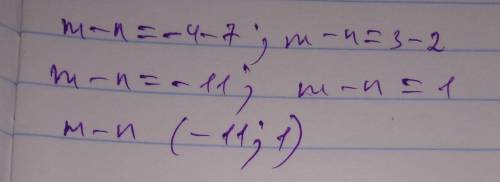 m-n=-4-7; m-n=3-2
m-n=-11; m-n=1
m-n (-11; 1)